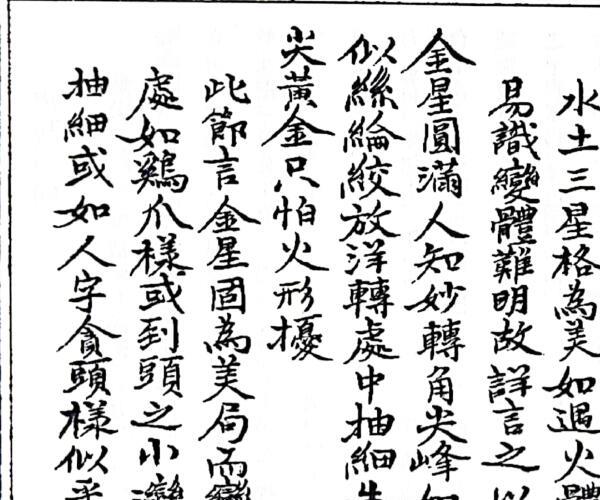 水土三星格為美如遇火體
易識變體難明故詳言之以
金星圓滿人知妙轉角尖峰如
似絲綸絞放洋轉處中抽細生
尖黃金只怕火形擾
此節言金星固為美局而變
處如鷄爪樣或到頭之小灣
抽細或如人字貪頭樣似乎